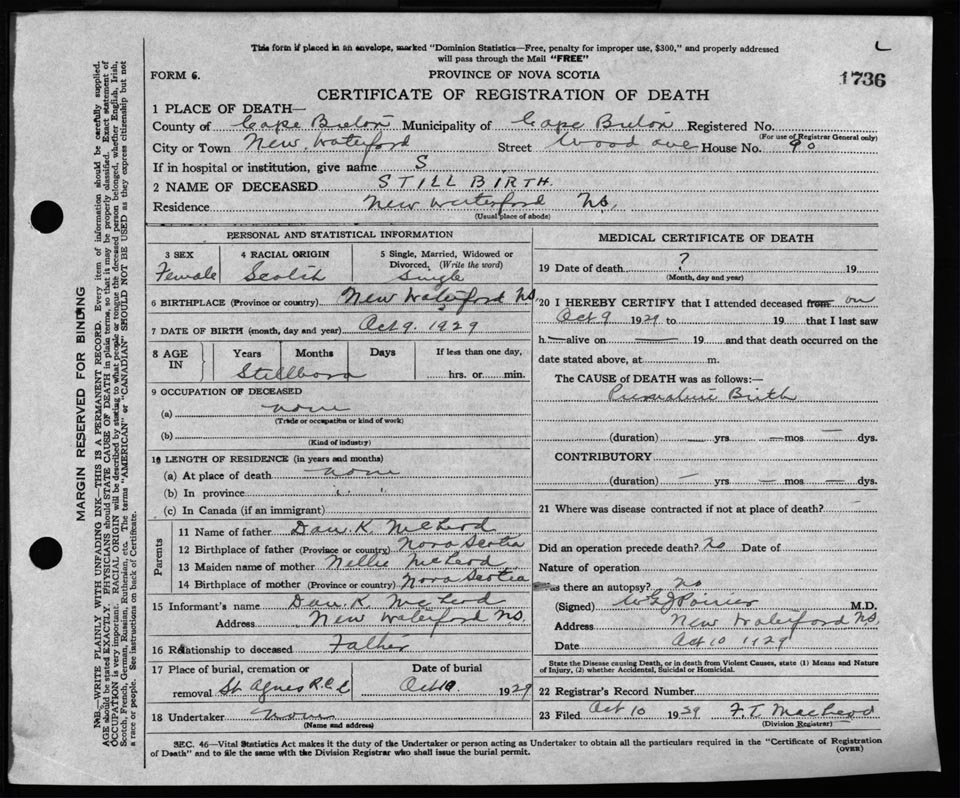 This form if placed in an envelope, marked "Dominion Statistics—Free, penalty for improper use, $300," and properly addressed
will pass through the Mail "FREE"
L
FORM 6.
PROVINCE OF NOVA SCOTIA
1736
CERTIFICATE OF REGISTRATION OF DEATH
1 PLACE OF DEATH—
County of Cape Breton Municipality of Cape Breton Registered No.
(For use of Registrar General only)
City or Town New Waterford Street Wood ave House No. 90
If in hospital or institution, give name S
2 NAME OF DECEASED STILL BIRTH.
Residence New Waterford N.S.
(Usual place of abode)
PERSONAL AND STATISTICAL INFORMATION
3 SEX
Female
4 RACIAL ORIGIN
Scotch
5 Single, Married, Widowed or
Divorced, (Write the word)
Single
6 BIRTHPLACE (Province or country) New Waterford N.S
7 DATE OF BIRTH (month, day and year) Oct 9. 1929
8 AGE IN
Years Months Days If less than one day,
Stillborn hrs. or min.
9 OCCUPATION OF DECEASED
(a) none
(Trade or occupation or kind of work)
(b)
(Kind of industry)
10 LENGTH OF RESIDENCE (in years and months)
(a) At place of death none
(b) In province " "
(c) In Canada (if an immigrant)
Parents
11 Name of father Dan. K. McLeod
12 Birthplace of father (Province or country) Nova Scotia
13 Maiden name of mother Nellie McLeod
14 Birthplace of mother (Province or country) Nova Scotia
15 Informant's name Dan. K. McLeod
Address New Waterford N.S.
16 Relationship to deceased Father
17 Place of burial, cremation or
removal St. Agnes R.C.
Date of burial
Oct 10. 1929
18 Undertaker None
(Name and address)
MEDICAL CERTIFICATE OF DEATH
19 Date of death ? 19
(Month, day and year)
20 I HEREBY CERTIFY that I attended deceased from on
Oct 9 1929 to 19 that I last saw
h alive on — 19 and that death occurred on the
date stated above, at m.
The CAUSE of DEATH was as follows:—
Premature Birth
(duration) — yrs — mos — dys.
CONTRIBUTORY
(duration) — yrs — mos — dys.
21 Where was disease contracted if not at place of death?
Did an operation precede death? No Date of
Nature of operation
as there an autopsy? no
(Signed) Poirier M.D.
Address New Waterford N.S.
Date Oct 10 1929
State the Disease causing Death, or in death from Violent Causes, state (1) Means and Nature
of Injury, (2) whether Accidental, Suicidal or Homicidal.
22 Registrar's Record Number
23 Filed Oct 10 1929 F.T. MacLeod
(Division Registrar)
SEC. 46—Vital Statistics Act makes it the duty of the Undertaker or person acting as Undertaker to obtain all the particulars required in the "Certificate of Registration
of Death" and to file the same with the Division Registrar who shall issue the burial permit.
(OVER)
MARGIN RESERVED FOR BINDING
N.B.—WRITE PLAINLY WITH UNFADING INK—THIS IS A PERMANENT RECORD. Every item of information should be carefully supplied.
AGE should be stated EXACTLY. PHYSICIANS should STATE CAUSE OF DEATH in plain terms, so that it may be properly classified. Exact statement of
OCCUPATION is very important. RACIAL ORIGIN will be described by stating to what people or tongue the deceased person belonged, whether English, Irish,
Scotch, French, German, Russian, Ruthenian, etc. The terms "AMERICAN" or "CANADIAN" SHOULD NOT BE USED as they express citizenship but not
a race or people. See instructions on back of Certificate.